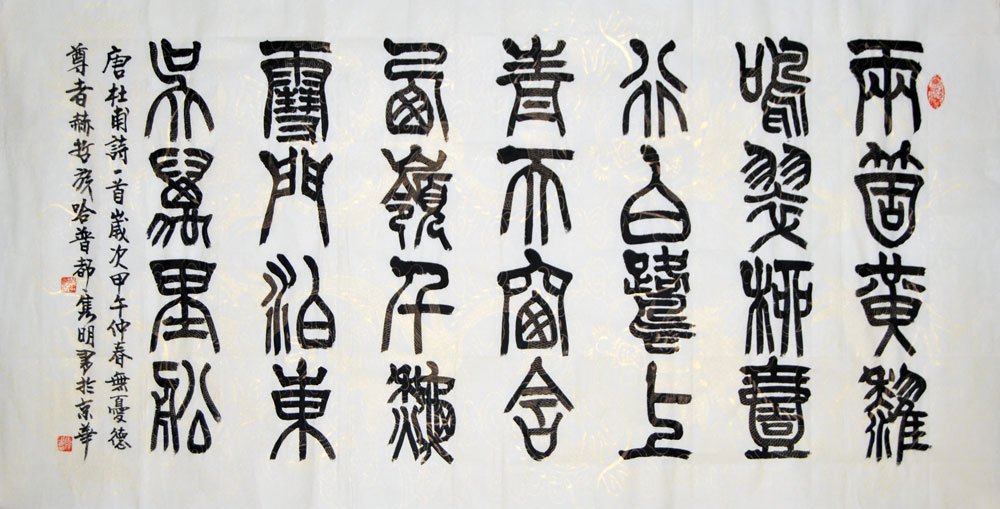 兩箇黃鸝
鳴翠柳壹
行白鷺上
青天窗含
西嶺千秋
雪門泊東
吳萬里船
唐杜甫詩一首歲次甲午仲春無憂德
尊者赫哲族哈普都隽明書於京華